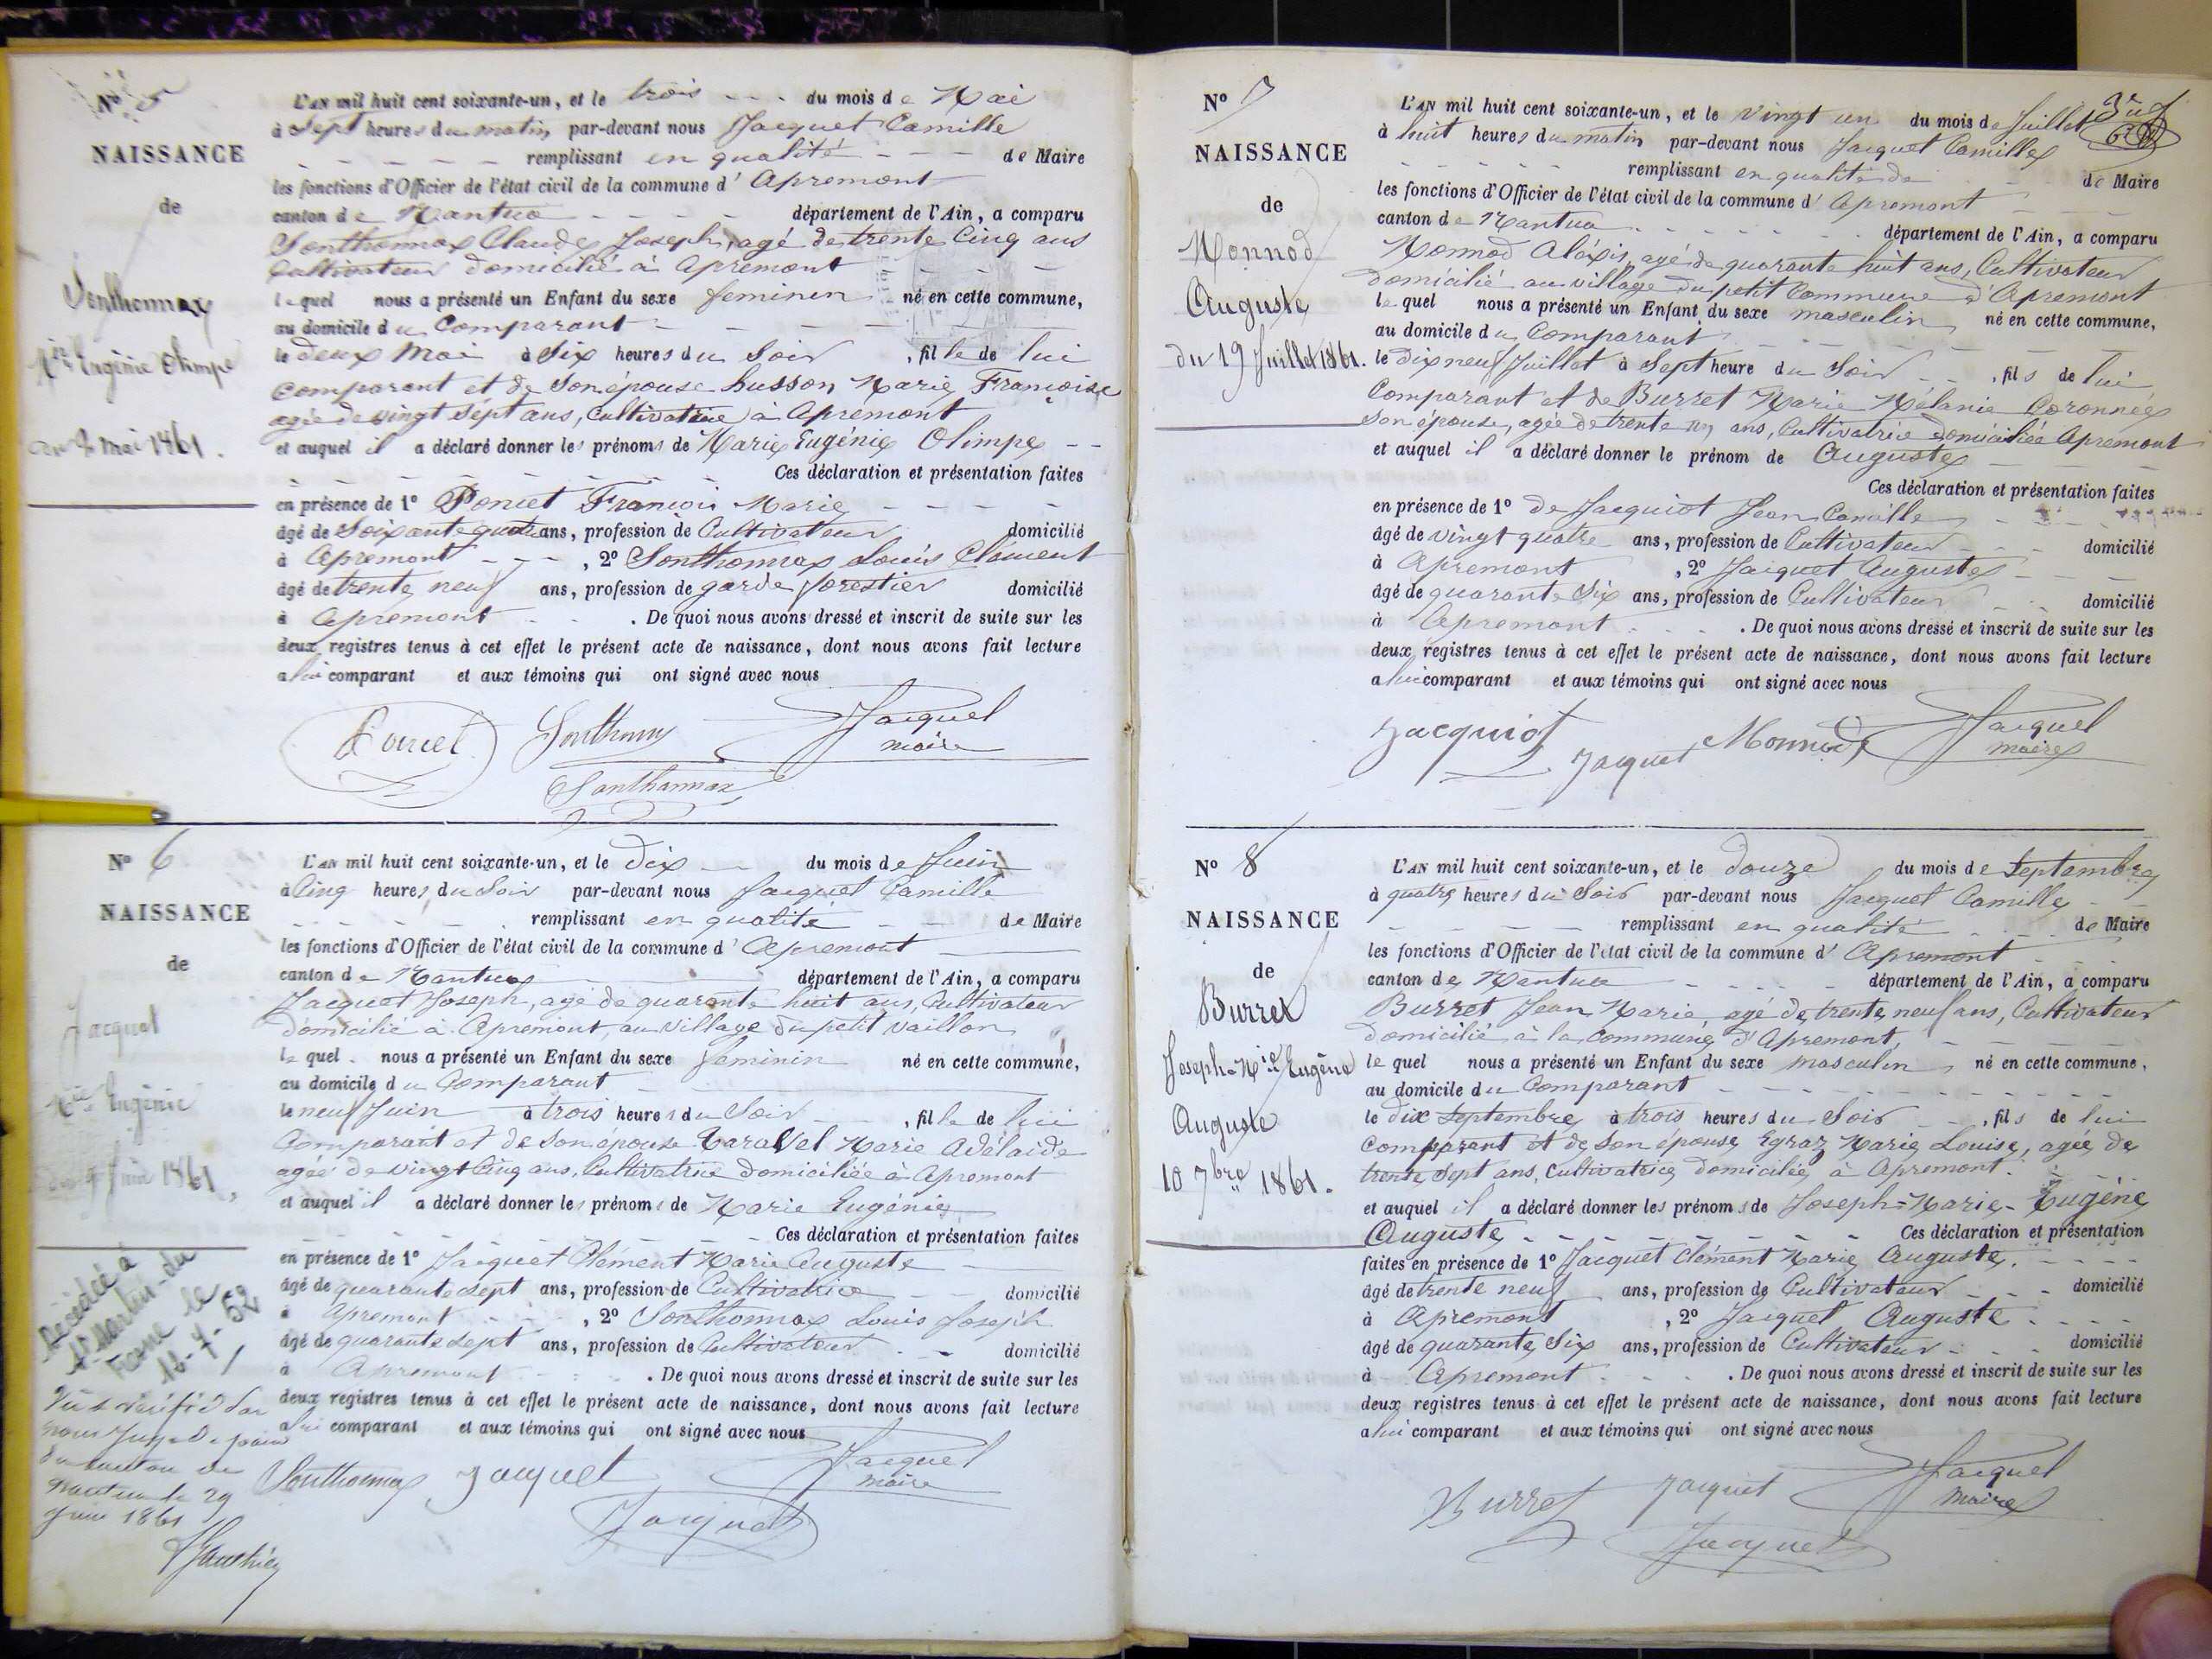 N° 5
NAISSANCE
de
Sonthonnax
Mie Eugénie Olimpe
du 2 mai 1861.
L'AN mil huit cent soixante-un, et le trois du mois de Mai
à Sept heures du matin, par-devant nous Jacquet Camille
remplissant en qualité de Maire
les fonctions d'Officier de l'état civil de la commune d'Apremont
canton de Nantua département de l'Ain, a comparu
Sonthonnax Claude Joseph, agé de trente Cinq ans
Cultivateur domicilié à Apremont
lequel nous a présenté un Enfant du sexe feminin né en cette commune,
au domicile du Comparant
le deux Mai à Six heures du Soir, fille de lui
comparant et de Son épouse husson Marie Françoise
agée de vingt sept ans, Cultivatrice à Apremont
et auquel il a déclaré donner les prénoms de Marie Eugénie Olimpe
Ces déclaration et présentation faites
en présence de 1° Poncet François Marie
âgé de Soixante quatre ans, profession de Cultivateur domicilié
à Apremont, 2° Sonthonnax Louis Clément
âgé de trente neuf ans, profession de garde forestier domicilié
à Apremont. De quoi nous avons dressé et inscrit de suite sur les
deux registres tenus à cet effet le présent acte de naissance, dont nous avons fait lecture
a lui comparant et aux témoins qui ont signé avec nous
Poncet Sonthonnax Jacquet
maire
Sonthonnax
N° 6
NAISSANCE
de
Jacquet
Mie Eugénie
du 9 Juin 1861.
Décédée à
St Martin-du
Fresne le
16-7-52
Vu & vérifié par
nous Juge de paix
du canton de
Nantua le 29
Juin 1861
L'AN mil huit cent soixante-un, et le dix du mois de Juin
à Cinq heures du Soir par-devant nous Jacquet Camille
remplissant en qualité de Maire
les fonctions d'Officier de l'état civil de la commune d'Apremont
canton de Nantua département de l'Ain, a comparu
Jacquet Joseph, agé de quarante huit ans, Cultivateur
domicilié à Apremont, au village du petit Vaillon
lequel nous a présenté un Enfant du sexe feminin né en cette commune,
au domicile du Comparant
le neuf Juin à trois heures du Soir, fille de lui
Comparant et de Son épouse Caravel Marie Adélaide
agée de vingt Cinq ans, Cultivatrice domiciliée à Apremont
et auquel il a déclaré donner les prénoms de Marie Eugénie
Ces déclaration et présentation faites
en présence de 1° Jacquet Clément Marie Auguste
âgé de quarante sept ans, profession de Cultivatrice domicilié
à Apremont, 2° Sonthonnax Louis Joseph
âgé de quarante sept ans, profession de Cultivateur domicilié
à Apremont. De quoi nous avons dressé et inscrit de suite sur les
deux registres tenus à cet effet le présent acte de naissance, dont nous avons fait lecture
a lui comparant et aux témoins qui ont signé avec nous
Sonthonnax Jacquet Jacquet
maire
Jacquet
N° 7
NAISSANCE
de
Monnod
Auguste
du 19 Juillet 1861.
L'AN mil huit cent soixante-un, et le vingt un du mois de Juillet
à huit heures du matin par-devant nous Jacquet Camille
remplissant en qualité de de Maire
les fonctions d'Officier de l'état civil de la commune d'Apremont
canton de Nantua département de l'Ain, a comparu
Monnod Aléxis, agé de quarante huit ans, Cultivateur
domicilié au village du petit Commune d'Apremont
lequel nous a présenté un Enfant du sexe masculin né en cette commune,
au domicile du Comparant
le dix neuf Juillet à Sept heure du Soir, fils de lui
Comparant et de Burret Marie Mélanie Coronnée
Son épouse, agée de trente ans, Cultivatrice domiciliée Apremont
et auquel il a déclaré donner le prénom de Auguste
Ces déclaration et présentation faites
en présence de 1° de Jacquiot Jean Camille
âgé de vingt quatre ans, profession de Cultivateur domicilié
à Apremont, 2° Jacquet Auguste
âgé de quarante Six ans, profession de Cultivateur domicilié
à Apremont. De quoi nous avons dressé et inscrit de suite sur les
deux registres tenus à cet effet le présent acte de naissance, dont nous avons fait lecture
a lui comparant et aux témoins qui ont signé avec nous
Jacquiot Jacquet Monnod Jacquet
maire
N° 8
NAISSANCE
de
Burret
Joseph-Mie Eugène
Auguste
10 7bre 1861.
L'AN mil huit cent soixante-un, et le douze du mois de Septembre
à quatre heures du Soir par-devant nous Jacquet Camille
remplissant en qualité de Maire
les fonctions d'Officier de l'état civil de la commune d'Apremont
canton de Nantua département de l'Ain, a comparu
Burret Jean Marie, agé de trente neuf ans, Cultivateur
domicilié à la Commune d'Apremont,
lequel nous a présenté un Enfant du sexe masculin, né en cette commune,
au domicile du Comparant
le dix Septembre à trois heures du Soir, fils de lui
comparant et de Son épouse Egraz Marie Louise, agée de
trente Sept ans, Cultivatrice domiciliée à Apremont.
et auquel il a déclaré donner les prénoms de Joseph-Marie-Eugène
Auguste Ces déclaration et présentation
faites en présence de 1° Jacquet Clément Marie Auguste,
âgé de trente neuf ans, profession de Cultivateur domicilié
à Apremont, 2° Jacquet Auguste
âgé de quarante Six ans, profession de Cultivateur domicilié
à Apremont. De quoi nous avons dressé et inscrit de suite sur les
deux registres tenus à cet effet le présent acte de naissance, dont nous avons fait lecture
a lui comparant et aux témoins qui ont signé avec nous
Burret Jacquet Jacquet
maire
Jacquet